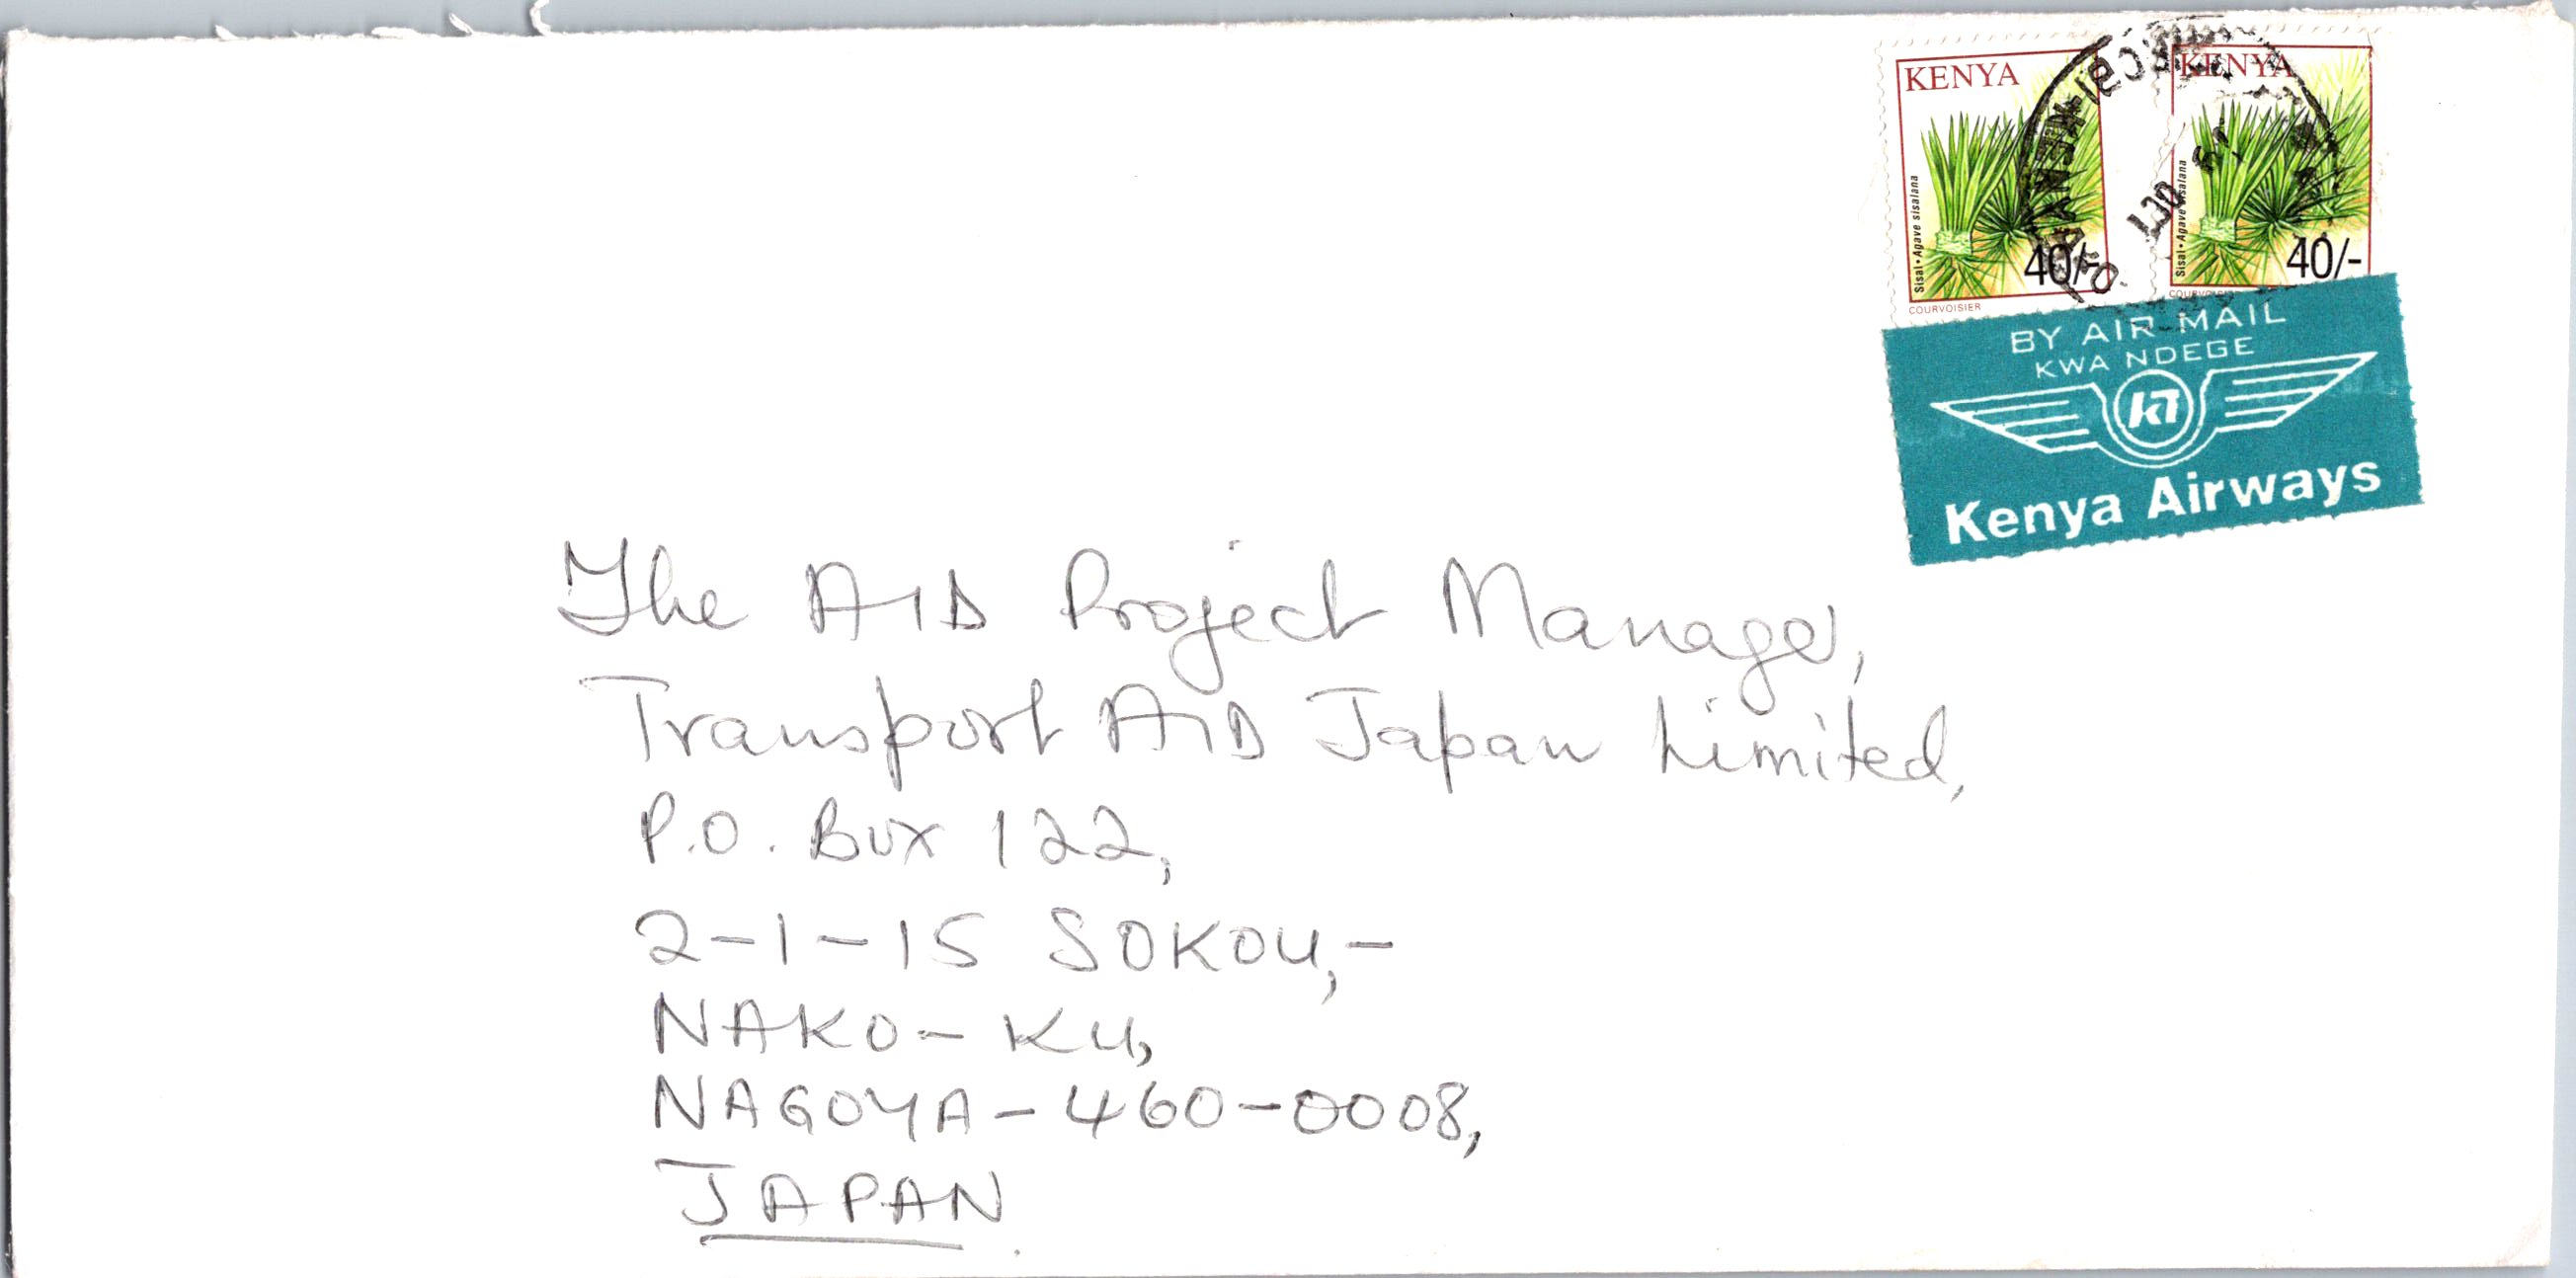 KENYA
Sisal • Agave sisalana
40/-
COURVOISIER
KENYA
Sisal • Agave sisalana
40/-
KENYA
OCT
BY AIR MAIL
KWA NDEGE
Kenya Airways
The AID Project Manager,
Transport AID Japan Limited,
P.O. Box 122,
2-1-15 SOKOU,-
NAKO-KU,
NAGOYA-460-0008,
JAPAN